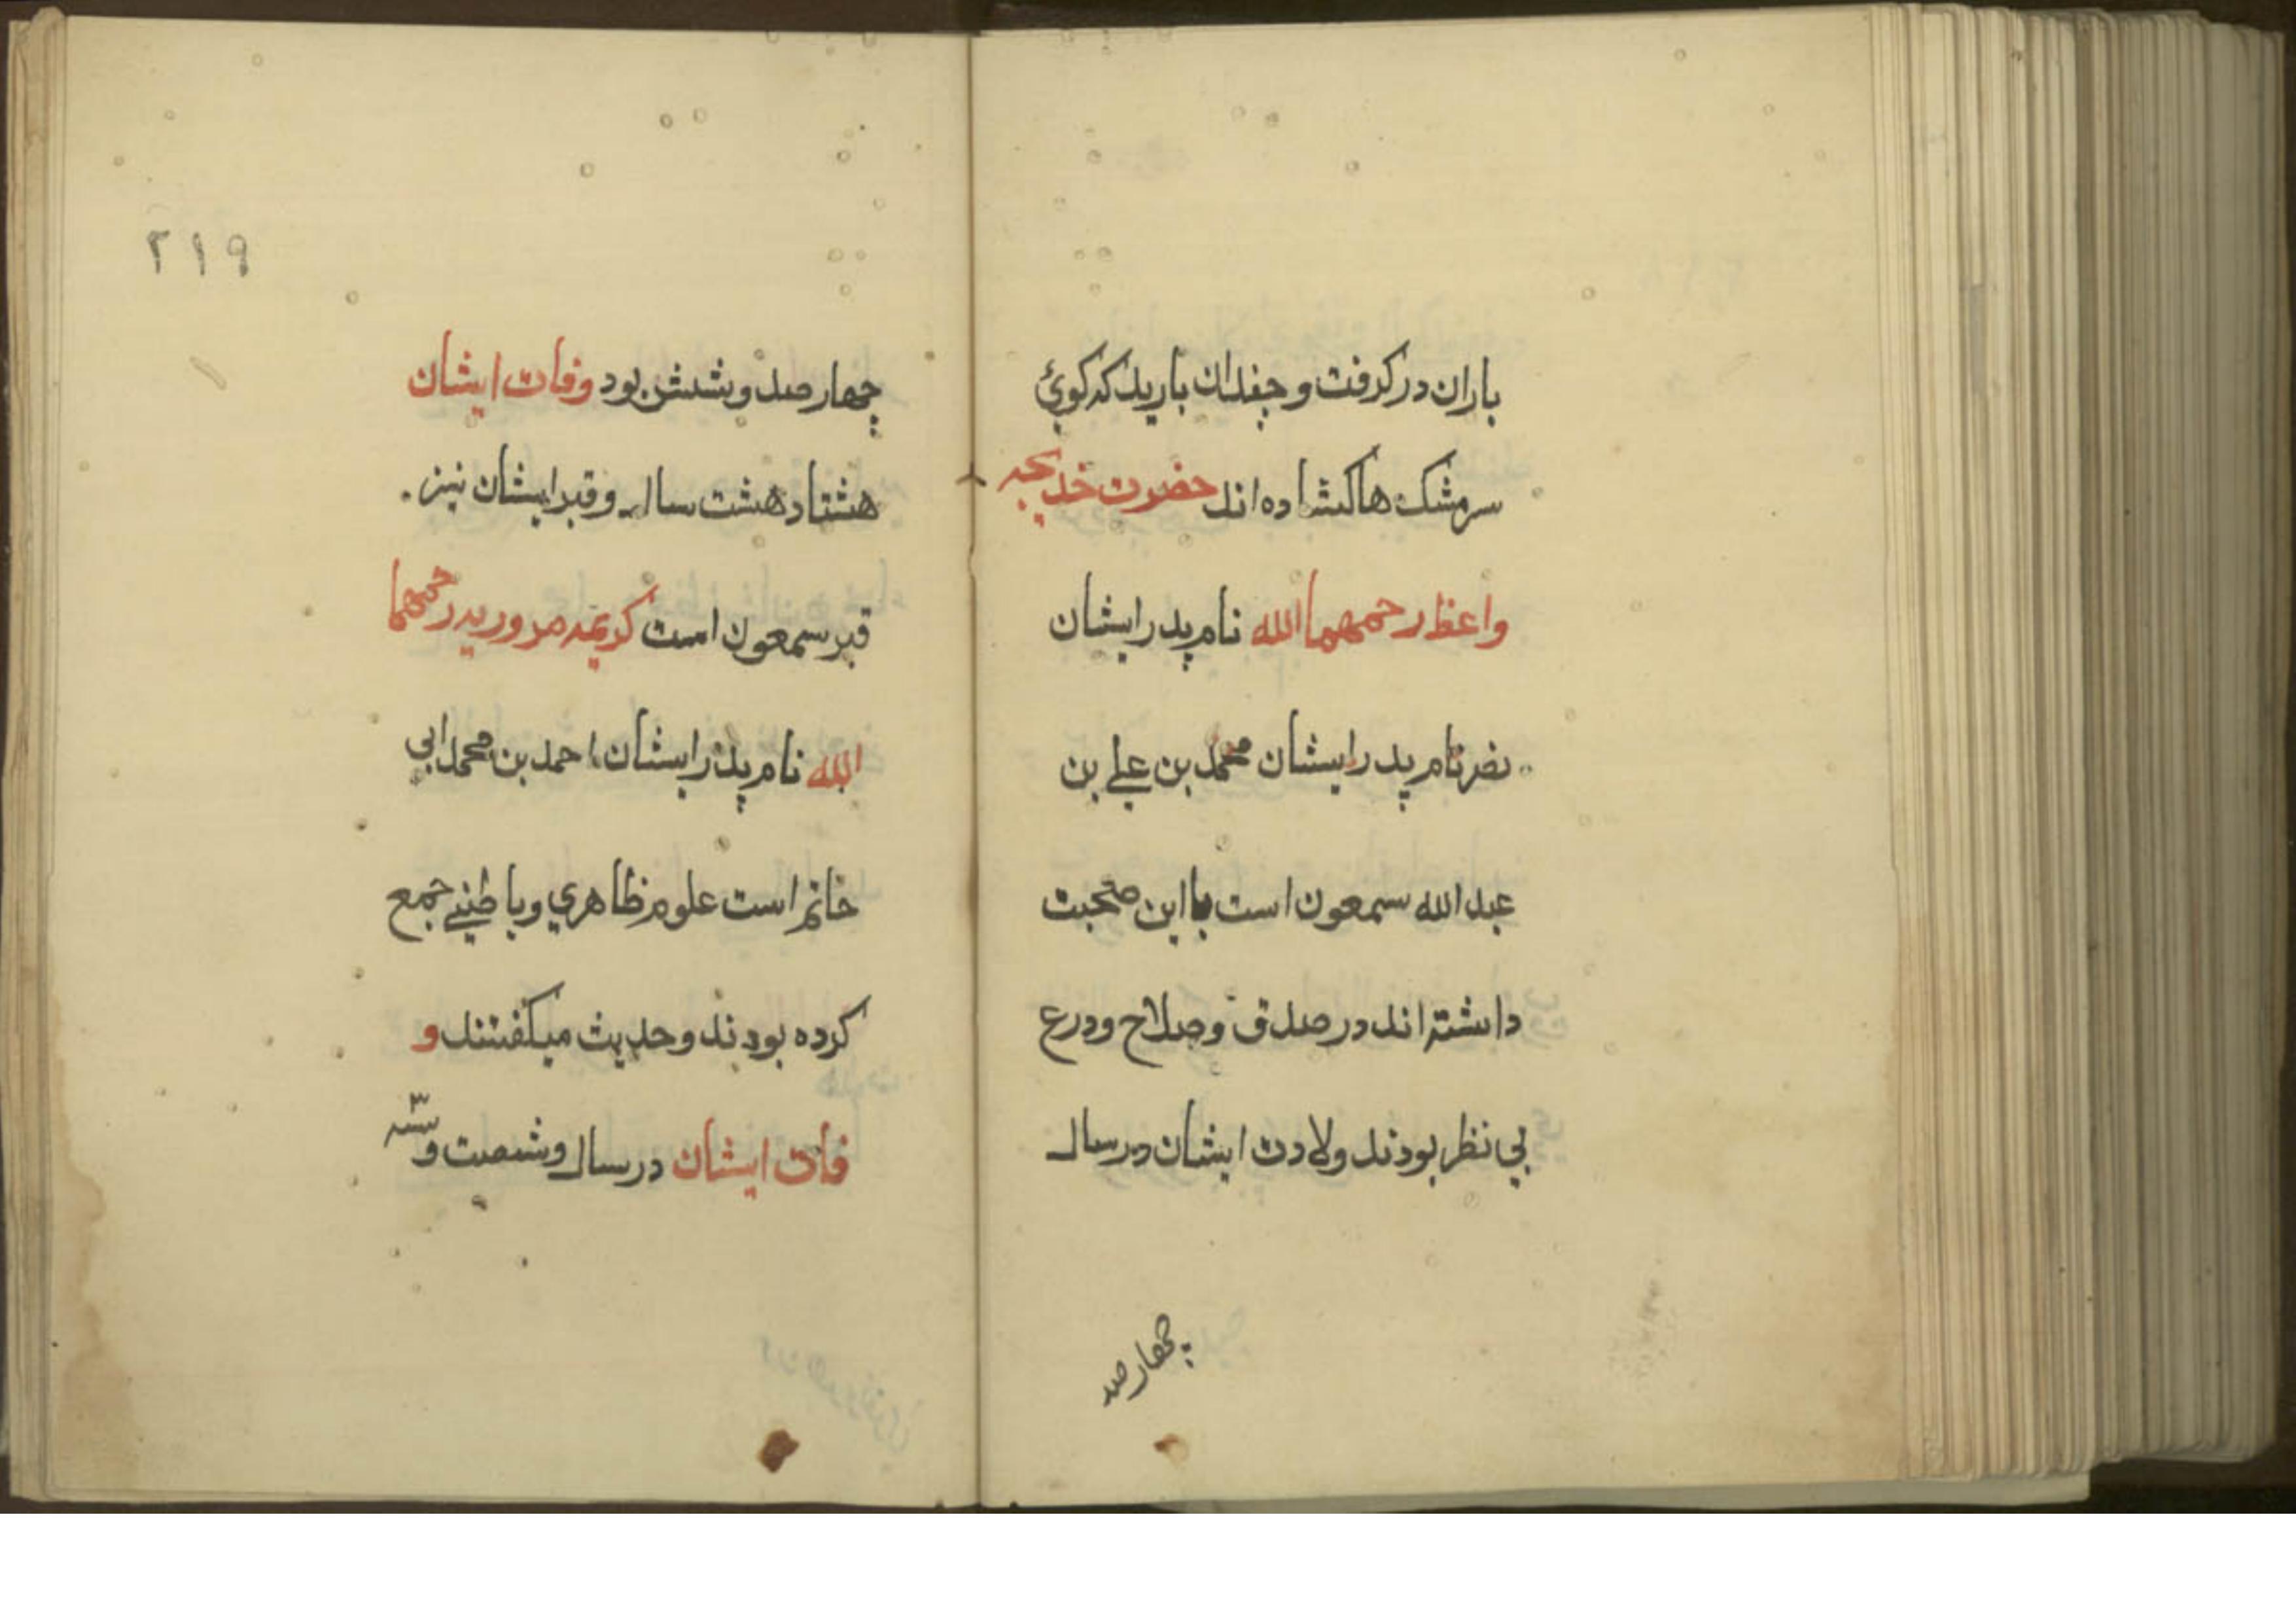 باران در کرفت و چندان بارید که کوئ
سر مشک ها کشاده اند حضرت خدیجه
واعظ رحمهما الله نام پدر ایشان
نام پدر ایشان محمد بن علی بن
عبد الله سمعون است با ابن صحبت
داشته اند در صدق و صلاح و درع
بی نظر بودند ولادت ایشان در سال
چهار صد
۲۱۹
چهار صد و شش بود وفات ایشان
هشتاد هشت سال و قبر ایشان نیز
قبر سمعون است کریمه مروریه رحمهما
الله نام پدر ایشان احمد بن محمد ابی
خاتم است علوم ظاهري و باطني جمع
کرده بودند و حدیث میکفتند و
فات ایشان در سال و شصت و سه